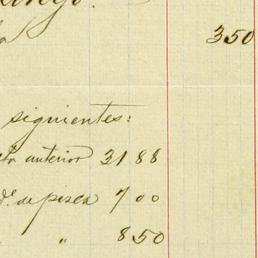 350
siguientes:
anterior 3188
de pisca 700
" 850